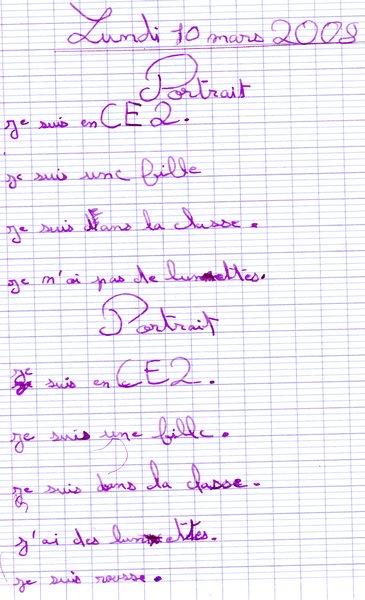 Lundi 10 mars 2008
Portrait
je suis en CE2.
je suis une fille
je suis dans la classe.
je n'ai pas de lunettes.
Portrait
je suis en CE2.
je suis une fille.
je suis dans la classe.
j'ai des lunettes.
je suis rousse.